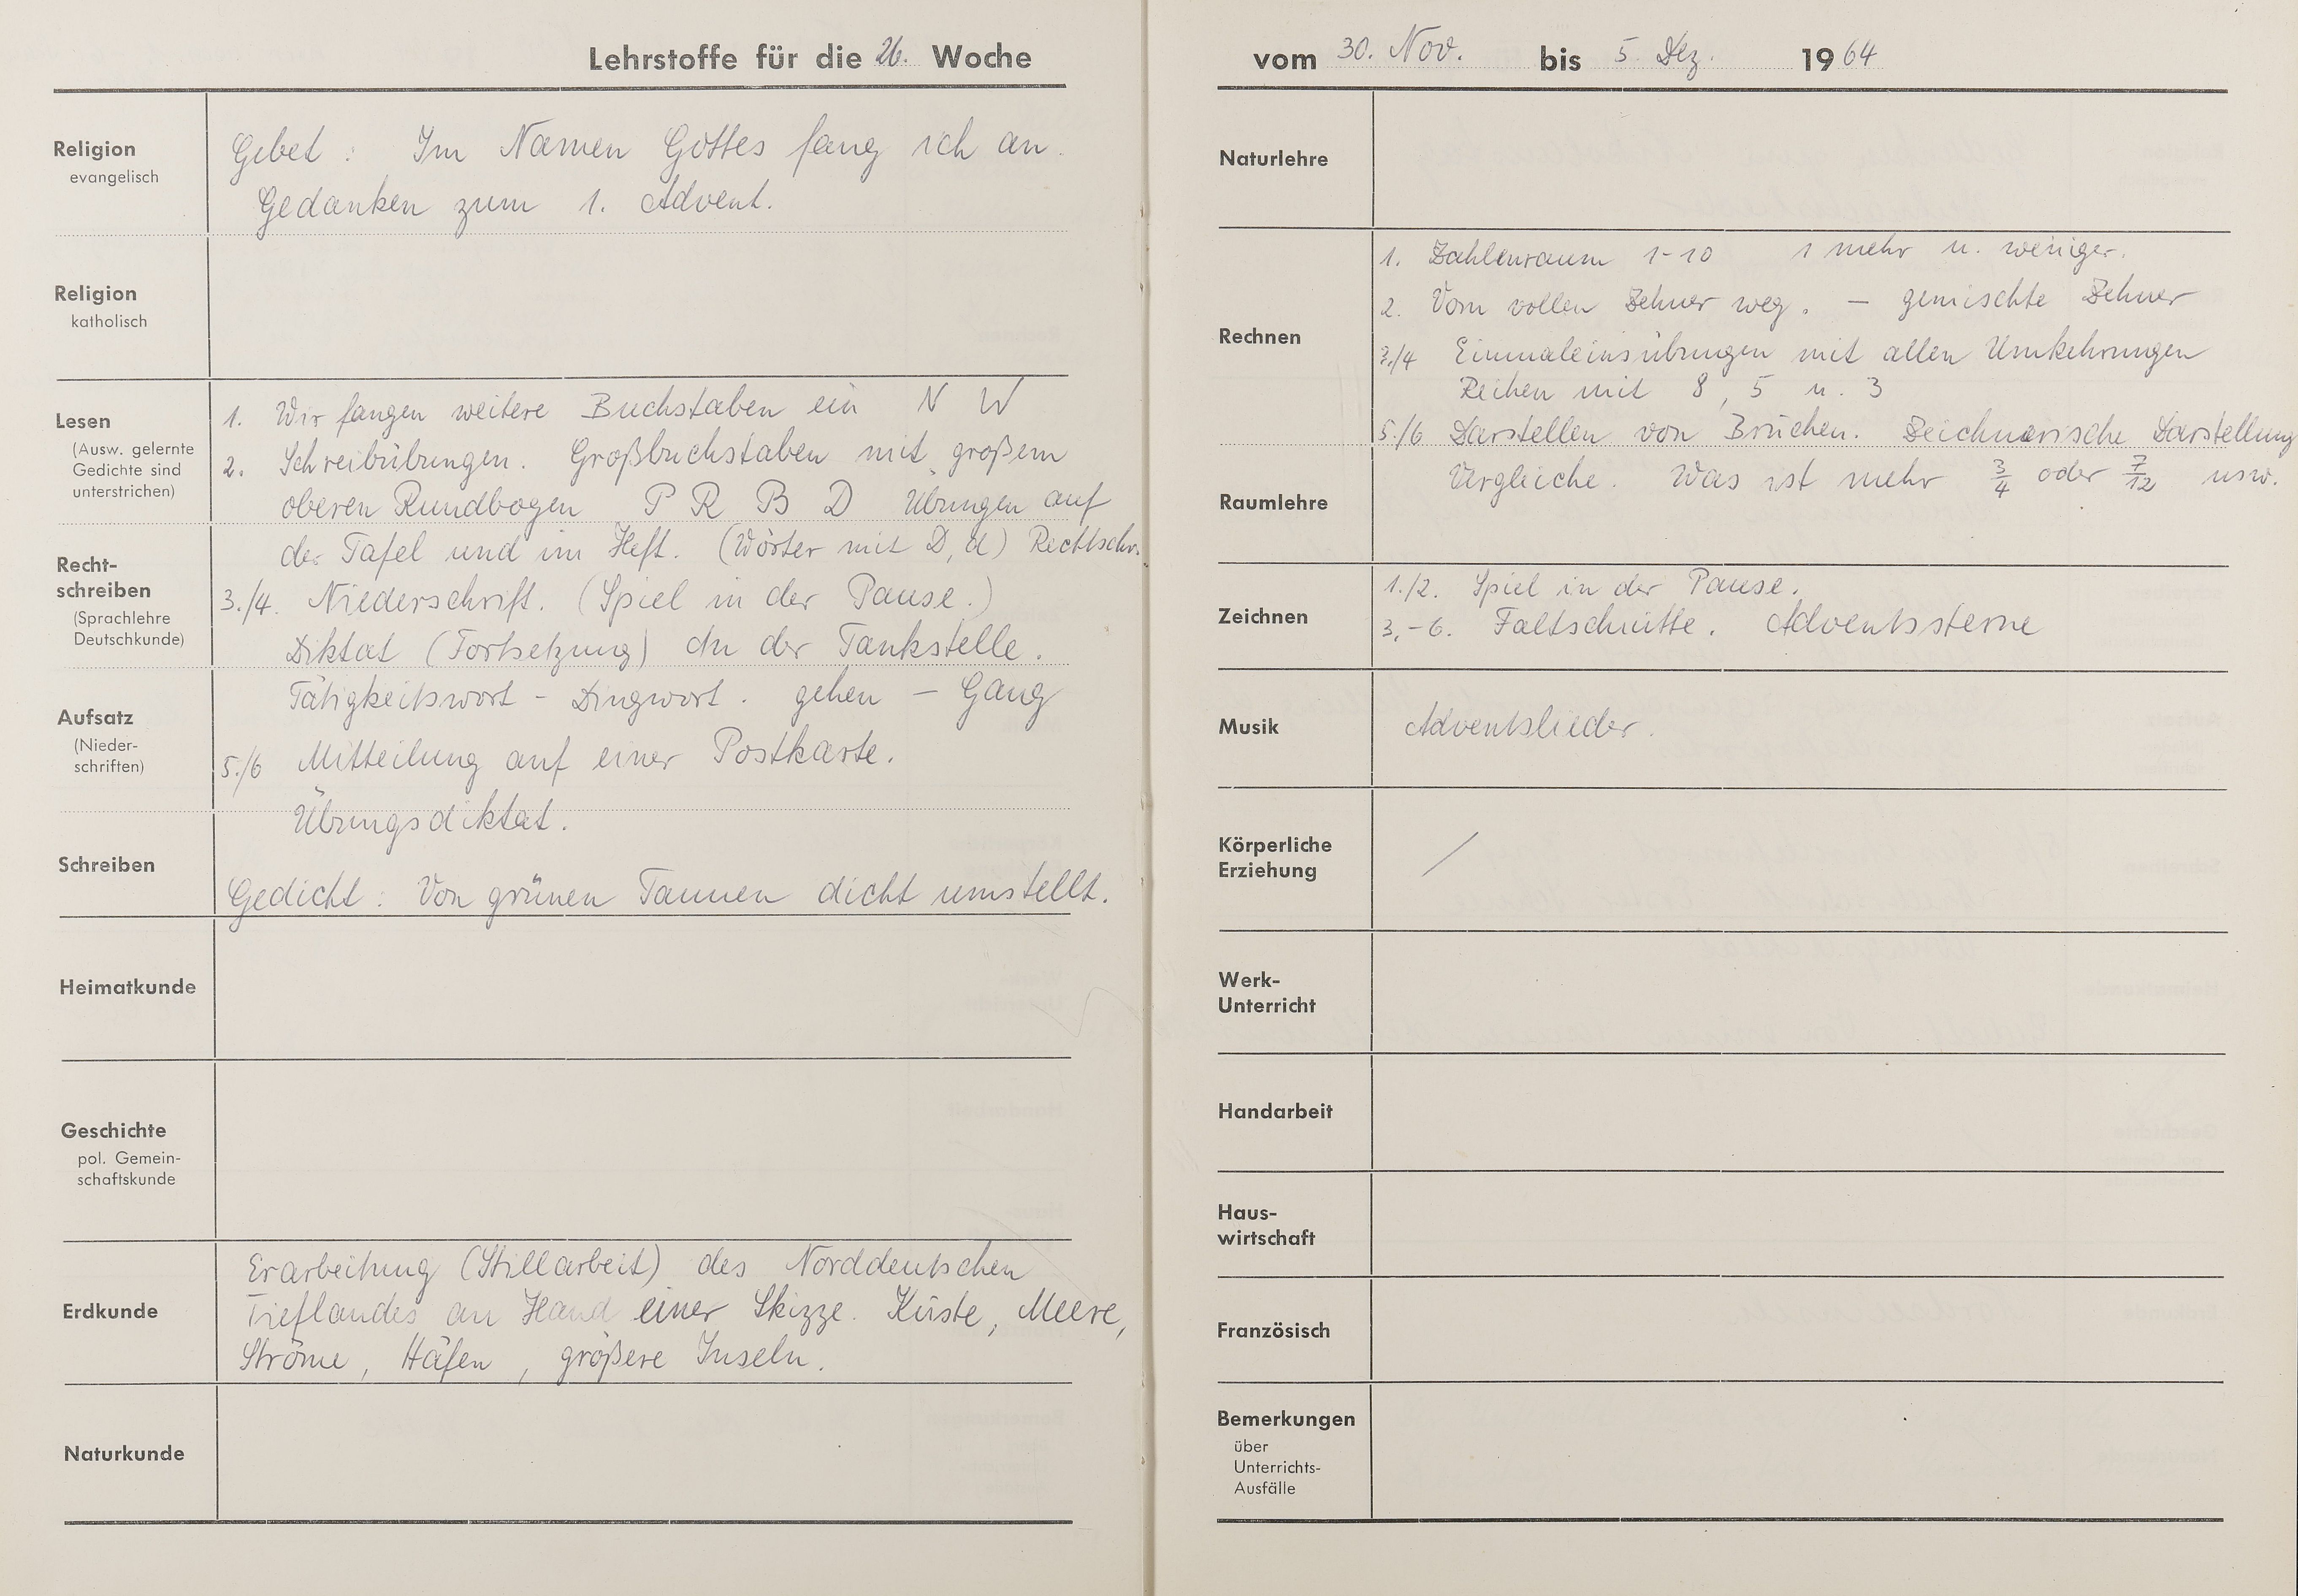 Lehrstoffe für die 26. Woche
Religion
evangelisch
Gebet : Im Namen Gottes fang ich an.
Gedanken zum 1. Advent.
Religion
katholisch
Lesen
(Ausw. gelernte
Gedichte sind
unterstrichen)
1. Wir fangen weitere Buchstaben ein N W
2. Schreibübungen. Großbuchstaben mit großem
oberen Rundbogen P R B D Übungen auf
der Tafel und im Heft. (Wörter mit D, d) Rechtschr.
Recht-
schreiben
(Sprachlehre
Deutschkunde)
3./4. Niederschrift. (Spiel in der Pause.)
Diktat (Fortsetzung) An der Tankstelle.
Tätigkeitswort - Dingwort. gehen - Gang
Aufsatz
(Nieder-
schriften)
5./6 Mitteilung auf einer Postkarte.
Übungsdiktat.
Schreiben
Gedicht : Von grünen Tannen dicht umstellt.
Heimatkunde
Geschichte
pol. Gemein-
schaftskunde
Erdkunde
Erarbeitung (Stillarbeit) des Norddeutschen
Tieflandes an Hand einer Skizze. Küste, Meere,
Ströme, Häfen, größere Inseln.
Naturkunde
vom 30. Nov. bis 5. Dez. 1964
Naturlehre
Rechnen
1. Zahlenraum 1-10 1 mehr u. weniger.
2. Vom vollen Zehner weg. - gemischte Zehner
3./4 Einmaleinsübungen mit allen Umkehrungen
Reihen mit 8, 5 u. 3
5./6 Darstellen von Brüchen. Zeichnerische Darstellung
Vergleiche. Was ist mehr 3/4 oder 7/12 usw.
Raumlehre
Zeichnen
1./2. Spiel in der Pause.
3.-6. Faltschnitte. Adventssterne
Musik
Adventslieder.
Körperliche
Erziehung
/
Werk-
Unterricht
Handarbeit
Haus-
wirtschaft
Französisch
Bemerkungen
über
Unterrichts-
Ausfälle